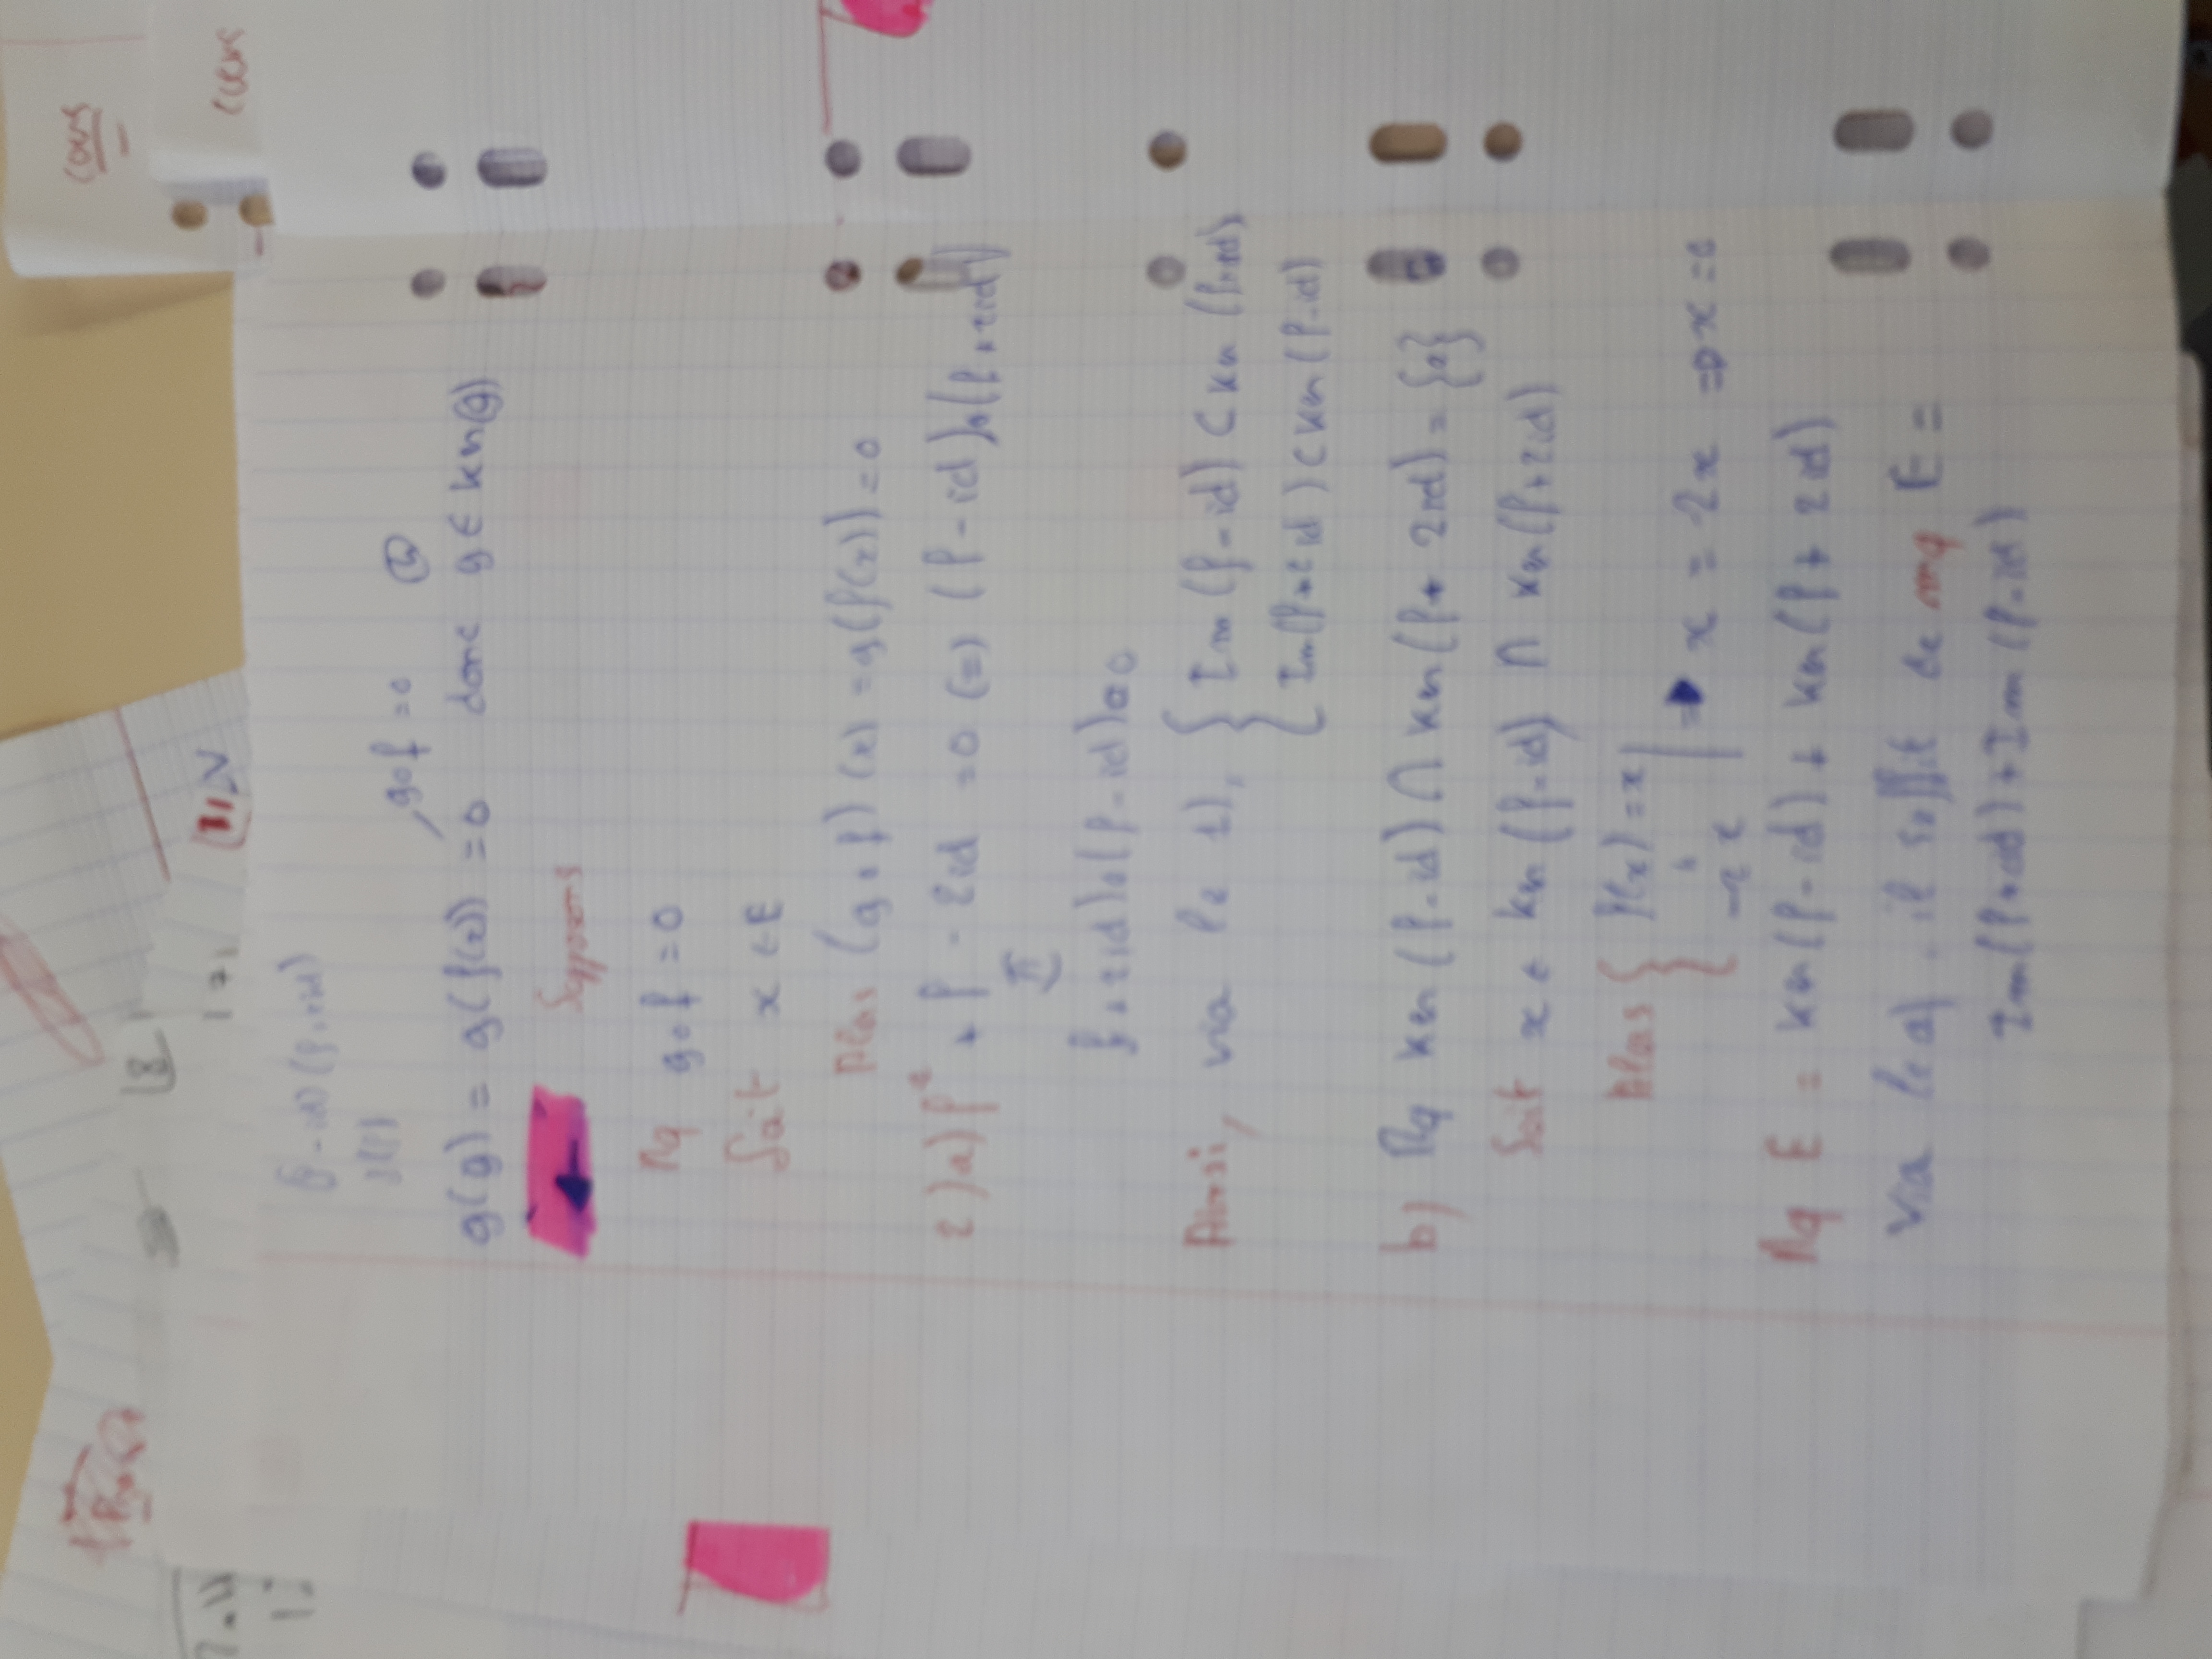 (f-id)(f+2id)
g∘f = 0
g(y) = g(f(x)) = 0 donc y ∈ ker(g)
Supposons
Mq g∘f = 0
Soit x ∈ E
Alors (g∘f)(x) = g(f(x)) = 0
2)a) f² + f - 2id = 0 (=) (f-id)∘(f+2id)
f+2id)∘(f-id)=0
Ainsi, via le 1), { Im(f-id) ⊂ Ker(f+2id)
Im(f+2id) ⊂ Ker(f-id)
b) Mq Ker(f-id) ∩ Ker(f+2id) = {0}
Soit x ∈ Ker(f-id) ∩ Ker(f+2id)
Alors { f(x) = x
-2x | => x = -2x => x = 0
Mq E = Ker(f-id) + Ker(f+2id)
Via le a), il suffit de mq E =
Im(f+2id) + Im(f-id)
cours
cours